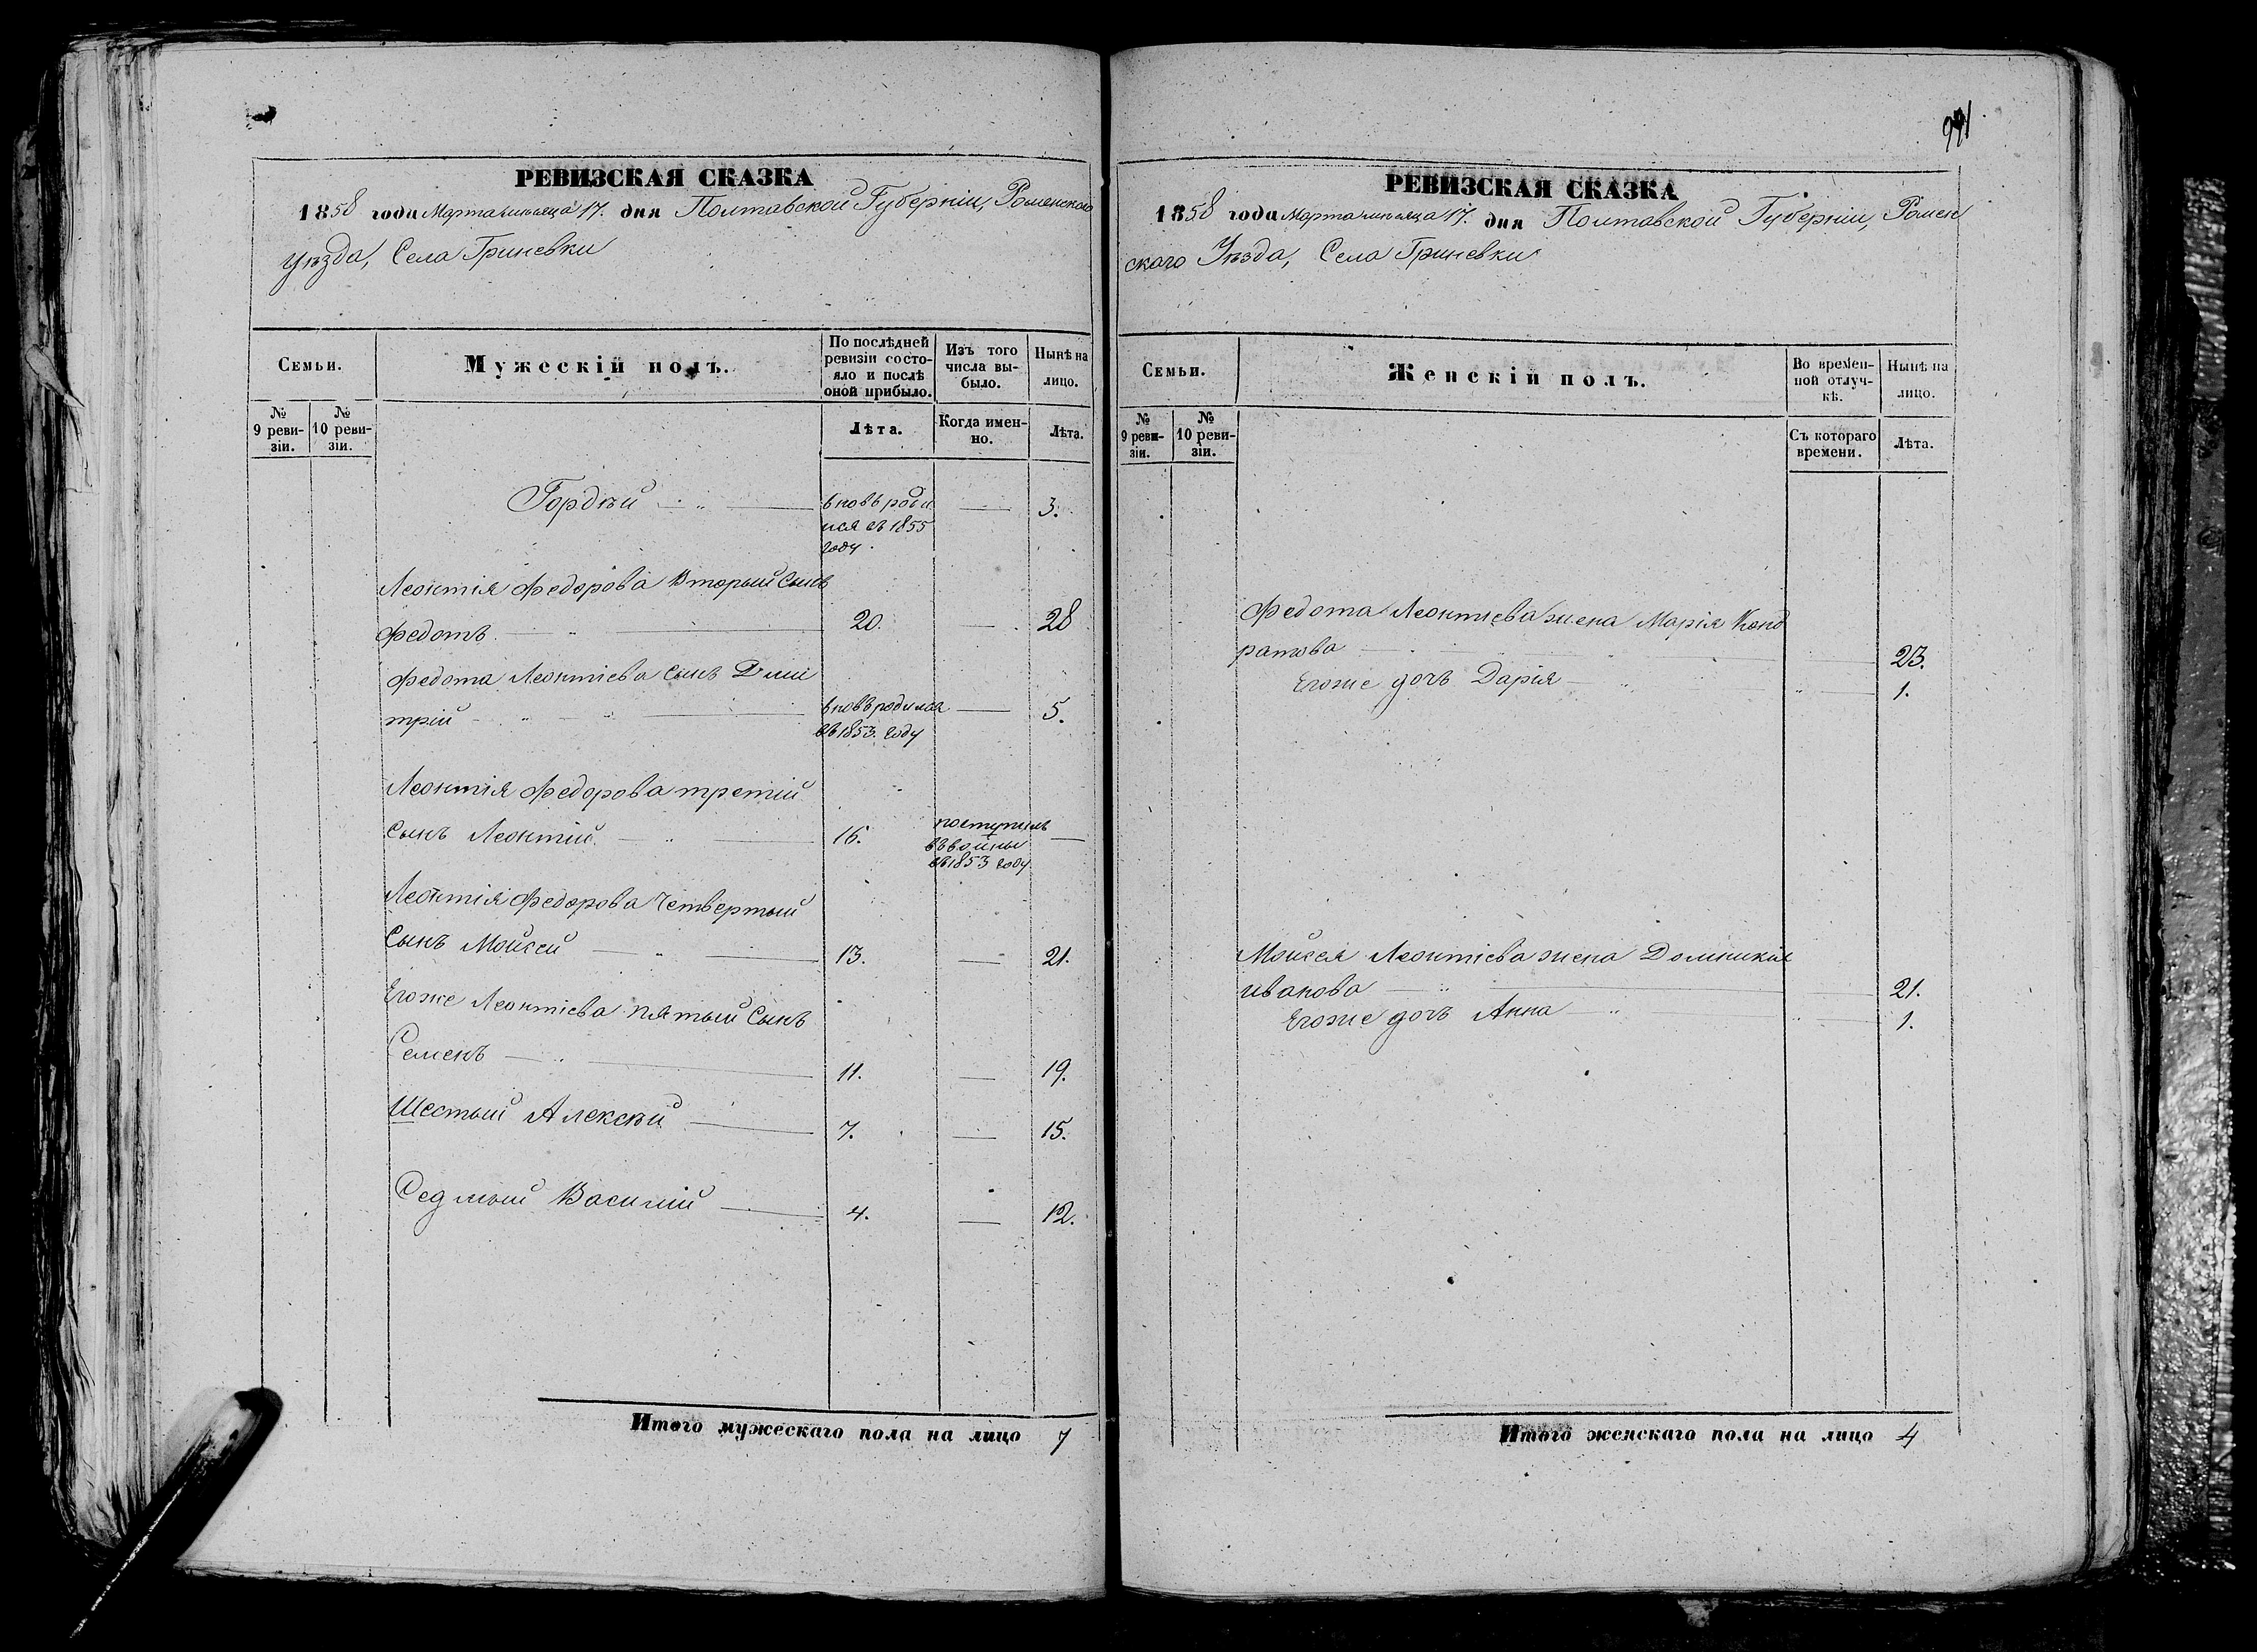 РЕВИЗСКАЯ СКАЗКА
1858 года Марта месяца 17. дня Полтавской Губерніи, Роменского
Уѣзда, Села Гриневки
Семьи.
Мужескій полъ.
По послѣдней
ревизіи состо-
яло и послѣ
оной прибыло.
Изъ того
числа вы-
было.
Нынѣ на
лицо.
№
9 реви-
зіи.
№
10 реви-
зіи.
Лѣта.
Когда имен-
но.
Лѣта.
Гордѣй вновь роди 3.
лся въ 1855
году.
Леонтія Федорова Вторый Сынъ
Федотъ. 20. 28
Федота Леонтіева сынъ Дми
трій вновь родился 5.
въ 1853. году
Леонтія Федорова третій
Сынъ Леонтій. 16. поступилъ
въ 1853 году.
Леонтія Федорова Четвертый
Сынъ Мойсей 13. 21.
Егоже Леонтіева пятый Сынъ
Семенъ 11. 19.
Шестый Алексѣй 7. 15.
Седмый Василій 4. 12.
Итого мужескаго пола на лицо 7
РЕВИЗСКАЯ СКАЗКА
1858 года Марта месяца 17. дня Полтавской Губерніи, Ромен
ского Уѣзда, Села Гриневки
Семьи.
Женскій полъ.
Во времен-
ной отлуч-
кѣ.
Нынѣ на
лицо.
№
9 реви-
зіи.
№
10 реви-
зіи.
Съ котораго
времени.
Лѣта.
Федота Леонтіева жена Марія Конд
ратова 23.
Егоже дочь Дарія 1.
Мойсея Леонтіева жена Домникія
Иванова 21.
Егоже дочь Анна 1.
Итого женскаго пола на лицо 4